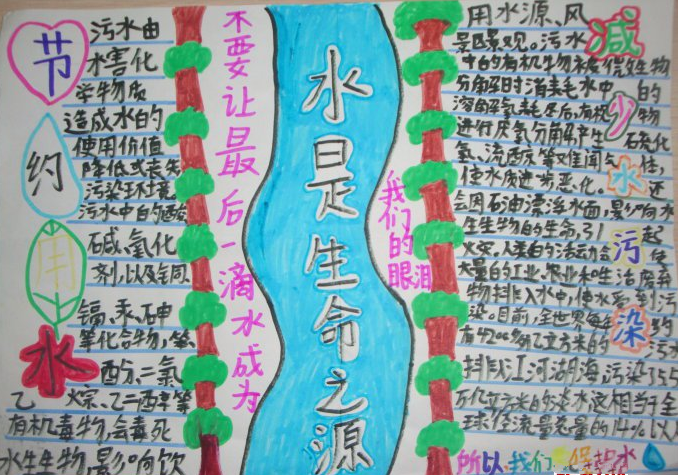 节
约
用
水
污水由
水害化
学物质
造成水的
使用价值
降低或丧失
污染环境。
污水中的酸
碱、氧化
剂,以及铜
镉、汞、砷
等化合物,苯、
二氯
乙烷、乙二醇等
有机毒物,会毒死
水生生物,影响饮
不要让最后一滴水成为
我们的眼泪
水是生命之源
用水源、风
景区景观。污水
中的有机物被微生物
分解时消耗水中的
溶解氧
进行厌氧分解产生
使水质进一步恶化。还
会因石油漂浮水面,影响水
生生物的生命,引起
火灾。人类的活动会使
大量的工业、农业和生活废弃
物排入水中,使水受到污
染。目前,全世界每年约
有4200多亿立方米的污水
排放江河湖海,污染了5.5
万亿立方米的淡水,这相当于全
球径流量总量的14%以
减
少
水
污
染
所以,我们 保护水